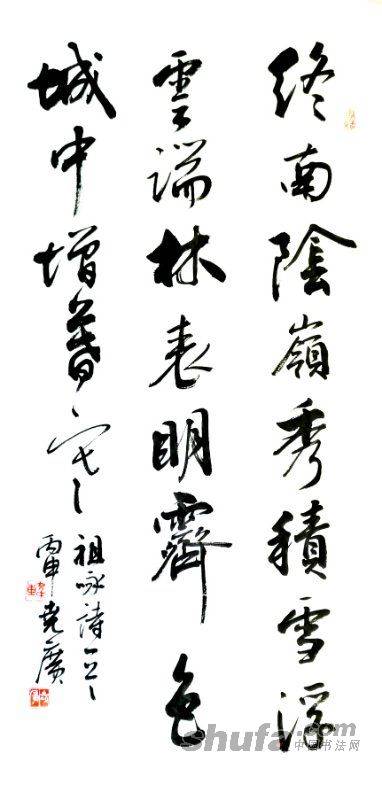 終南陰嶺秀積雪浮
雲端林表明霽色
城中增暮寒
祖咏詩一首
丙申堯廣
shufa.com
中国书法网